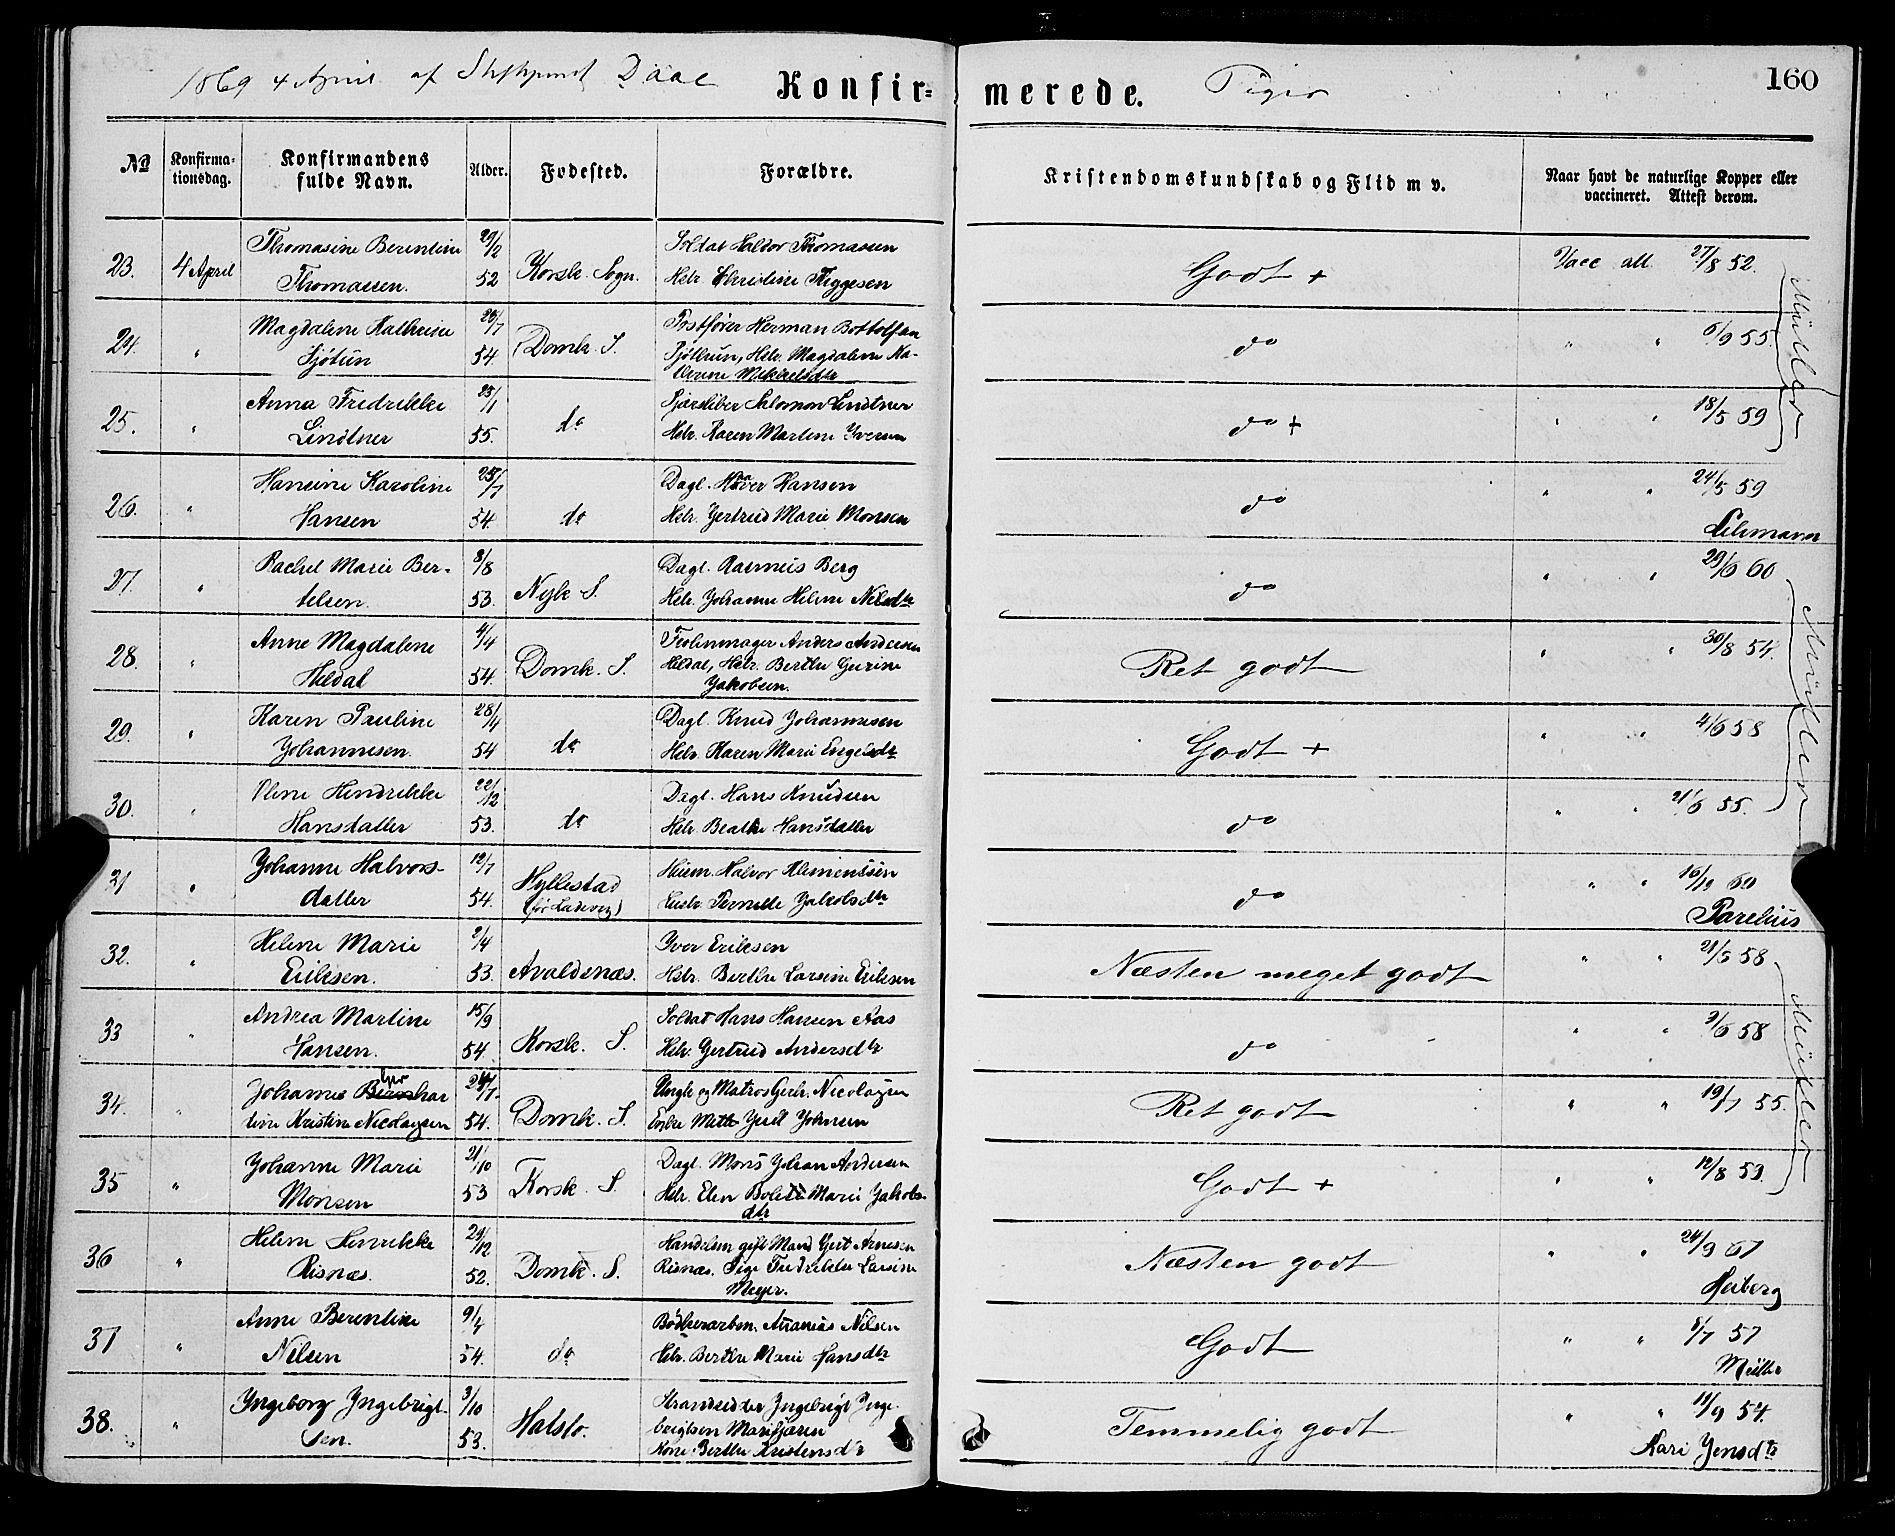 1869 4 April af Stiftsprovst Daae
Konfir=
merede.
Piger
160
No
Konfirma-
tionsdag.
Konfirmandens
fulde Navn.
Alder.
Fødested.
Forældre.
Kristendomskundskab og Flid m v.
Naar havt de naturlige Kopper eller
vaccineret. Attest derom.
23. 4 April Thomasine Berentine Thomassen. 29/2 52 Korsk. Sogn. Soldat Haldor Thomassen
Hstr. Christine Figgesen Godt + Vacc att. 27/8 52.
24. " Magdalene Kathrine Sjøtun 54 Domk. S. Postfører Herman Bottolfsen
Hstr. Magdalene Ka-
thrine Mikkelsdtr do " " 6/9 55.
Müller
25. " Anna Fredrikke Lindtner 25/1 55. do Salomon Lindtner
Hstr. Karen Martine Iversen do + " " 18/5 59
26. " Hansine Karoline Hansen 25/7 54. do Dagl. Hansen
Hstr. Gertrud Marie Monsen do " " 24/5 59
Lehmann
27. " Rachel Marie Ber-
telsen. 8/8 53. Nyk. S. Dagl. Rasmus Berg
Hstr. Johanne Helene Nilsdtr do " " 60
28. " Anne Magdalene Heldal 4/4 54. Domk. S. Anders Andersen
Heldal, Hstr. Berthe Gurine
Jakobsen. Ret godt " " 30/8 54.
29. " Karen Pauline Johannesen. 28/4 54 do Dagl. Knud Johannesen
Hstr. Karen Marie Engelsdtr Godt + " " 4/6 58
30. " Olene Hendrikke Hansdatter 22/12 53. do Dagl. Hans Knudsen
Hstr. Beathe Hansdatter do " " 21/6 55.
31 " Johanne Halvors-
datter 12/7 54. Hyllestad
Huusm. Halvor Klemensen
Hustr. Pernille Jakobsdtr do " " 60
Parelius
32. " Helene Marie Eriksen. 2/4 53 Avaldsnæs. Iver Eriksen
Hstr. Berthe Larsine Eriksen Næsten meget godt " " 21/5 58
33 " Andrea Martine Hansen. 15/9 54. Korsk. S. Soldat Hans Hansen Aas
Hstr. Gertrud Andersdtr do " " 3/6 58
34. " Johanne
tine Kristine Nicolaysen 54. Domk. S. Ungk. og Matros Gerh. Nicolaysen
Johnsen Ret godt " " 19/7 55.
35 " Johanne Marie Monsen 21/10 53 Korsk. S. Dagl. Mons Johan Andersen
Hstr. Elen Bolette Marie Jakobs-
dtr Godt + " " 12/8 59.
36 " Helene Henrikke Risnæs. 29/12 52. Domk. S. Handelsm. gift Mand Gert Arnesen
Risnæs. Pige Fredrikke Larsine
Meyer. Næsten godt " " 24/9 67
Heiberg
37 " Anne Berentine Nilsen 9/4 54. do Bødkerarbm. Ananias Nilsen
Hstr. Berthe Marie Hansdtr Godt " " 57
Müller
38. " Ingeborg Ingebrigt-
sen. 3/10 53. Hafslo. Strandsidder Ingebrigt Inge-
brigtsen Marifjæren
Kone Berthe Kristensdtr Temmelig godt " " 11/9 54.
Kari Jensdtr